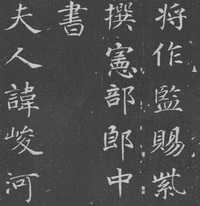 将作監賜紫
撰憲部郎中
書
夫人諱峻河